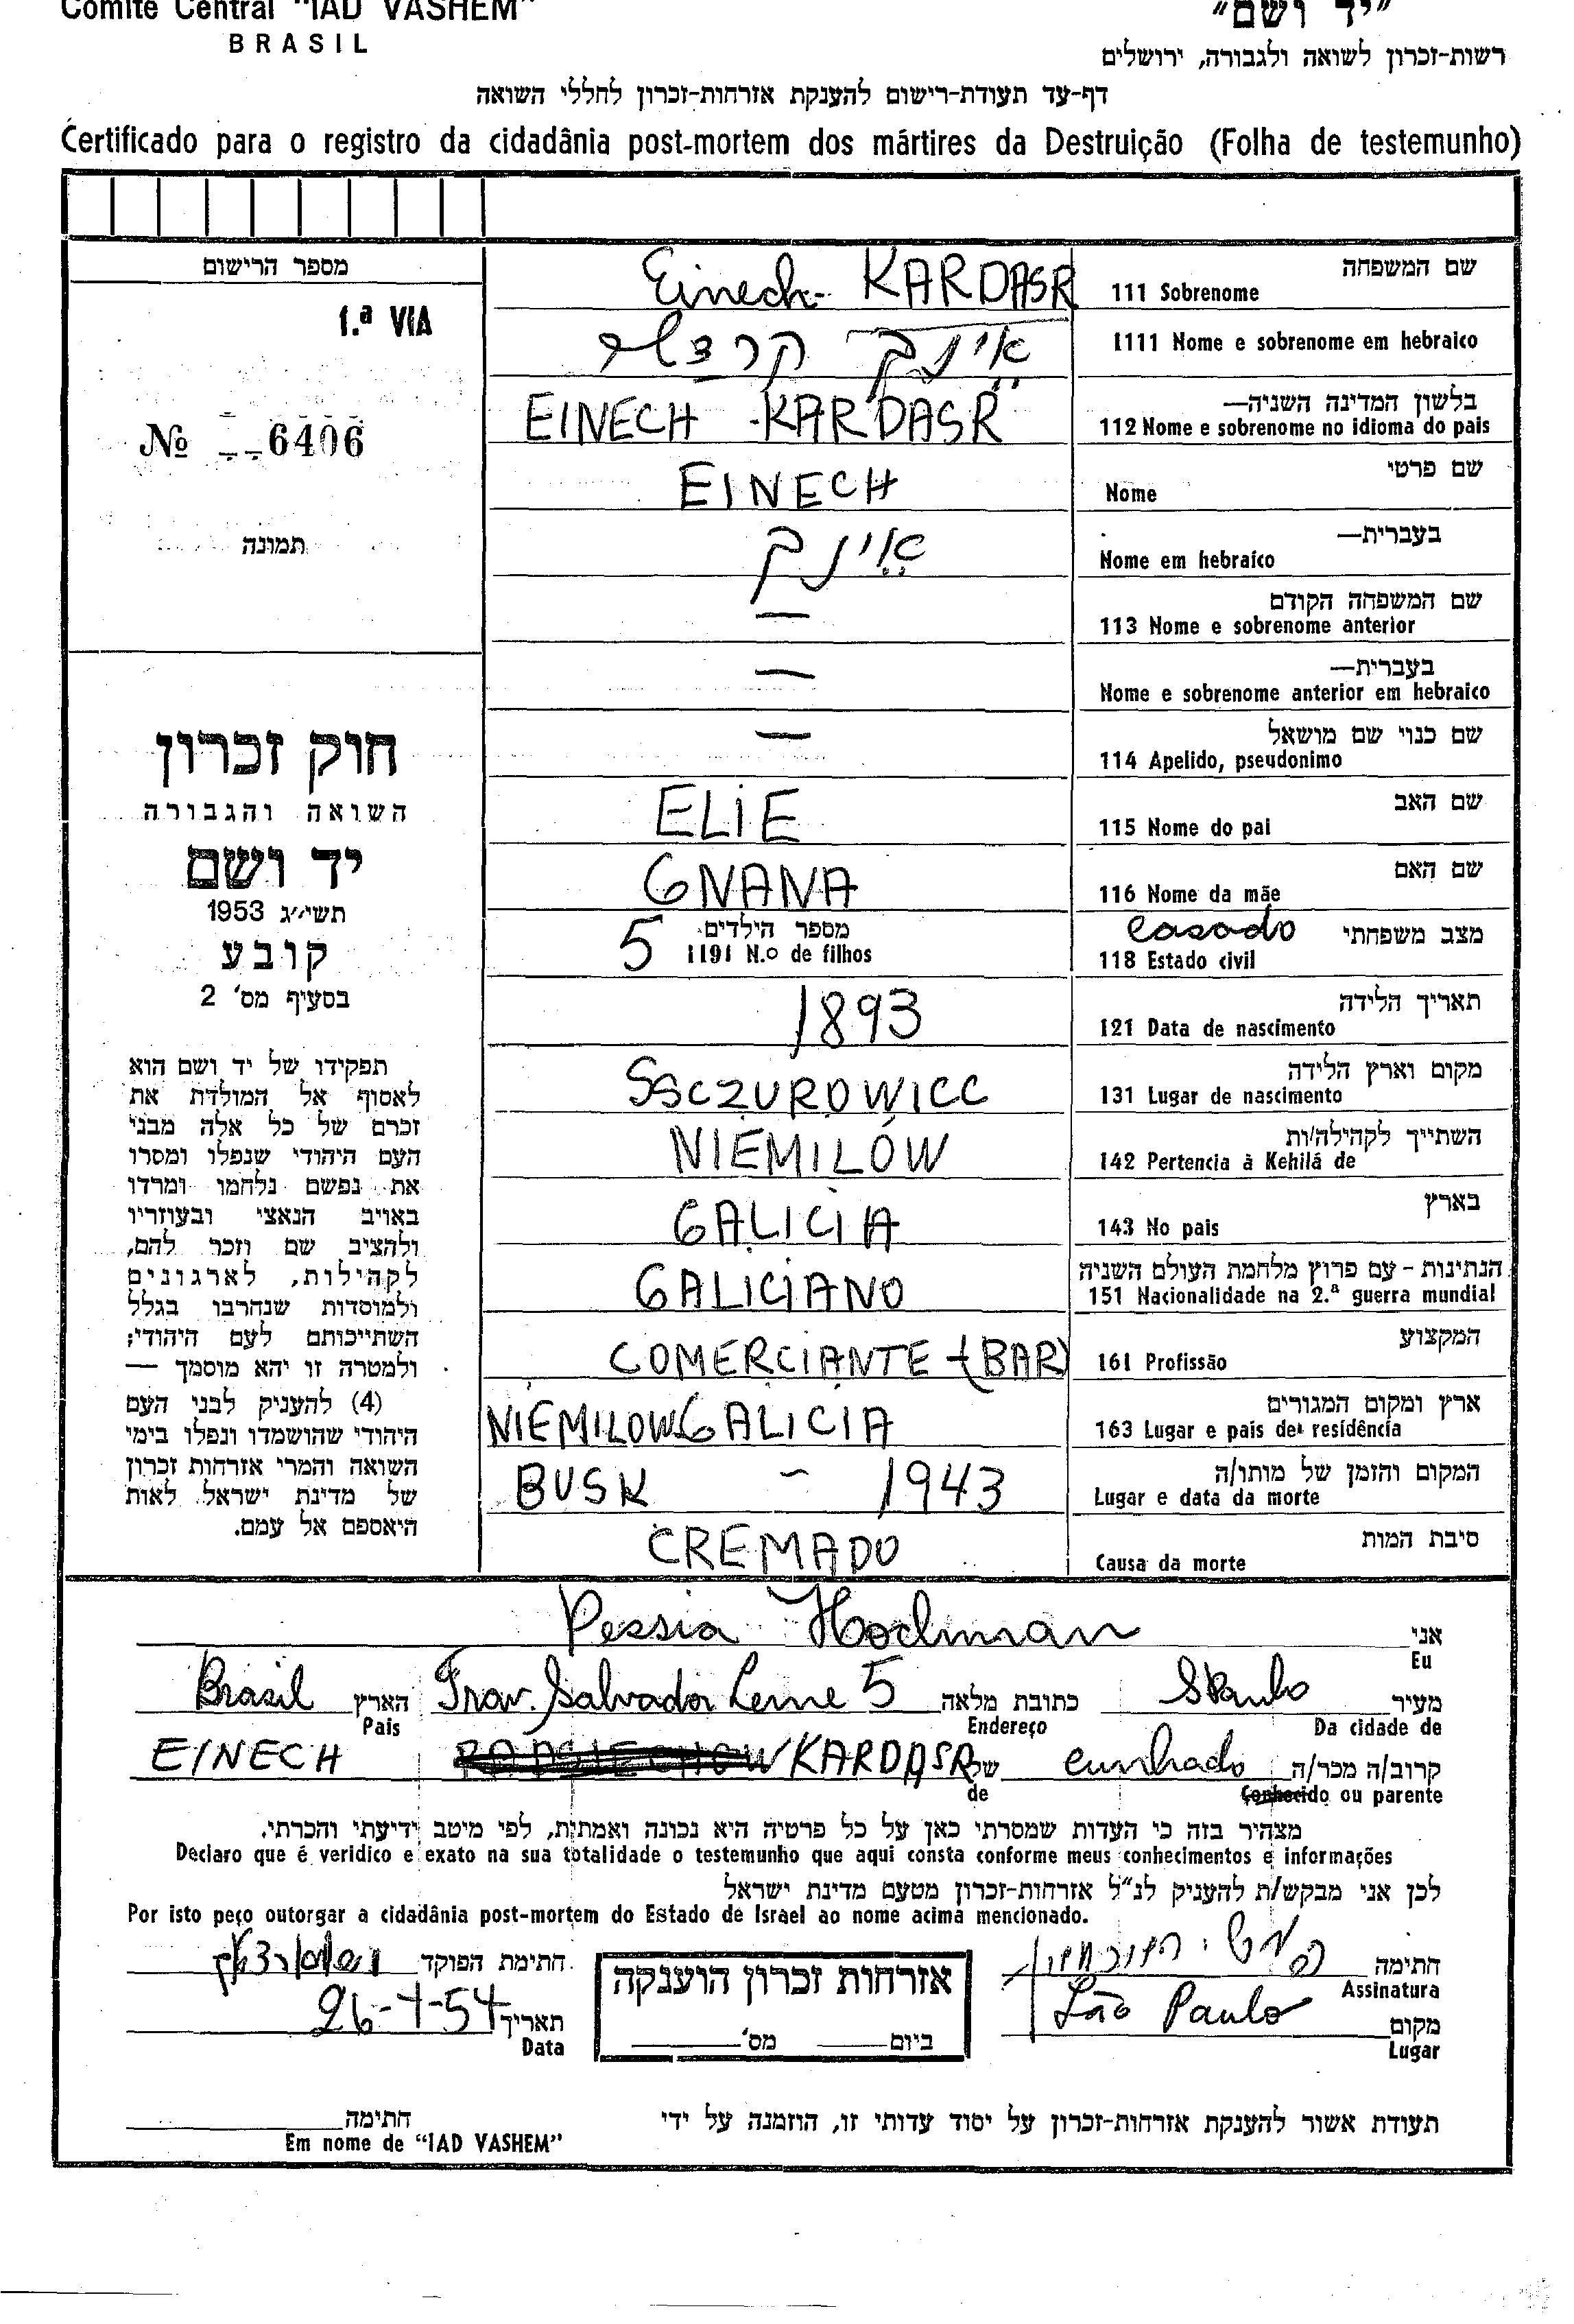 Comite Central "IAD VASHEM"
BRASIL
"יד ושם"
רשות-זכרון לשואה ולגבורה, ירושלים
דף-עד תעודת-רישום להענקת אזרחות-זכרון לחללי השואה
Certificado para o registro da cidadânia post-mortem dos mártires da Destruição (Folha de testemunho)
מספר הרישום
1.ª VIA
Nº 6406
תמונה
חוק זכרון
השואה והגבורה
יד ושם
תשי"ג 1953
קובע
בסעיף מס' 2
תפקידו של יד ושם הוא
לאסוף אל המולדת את
זכרם של כל אלה מבני
העם היהודי שנפלו ומסרו
את נפשם נלחמו ומרדו
באויב הנאצי ובעוזריו
ולהציב שם וזכר להם,
לקהילות, לארגונים
ולמוסדות שנחרבו בגלל
השתייכותם לעם היהודי;
ולמטרה זו יהא מוסמך —
(4) להעניק לבני העם
היהודי שהושמדו ונפלו בימי
השואה והמרי אזרחות זכרון
של מדינת ישראל לאות
היאספם אל עמם.
שם המשפחה
111 Sobrenome Einech- KARDASR
1111 Nome e sobrenome em hebraico אינך
בלשון המדינה השניה—
112 Nome e sobrenome no idioma do pais EINECH -KARDASR
שם פרטי
Nome EINECH
בעברית—
Nome em hebraico אינך
שם המשפחה הקודם
113 Nome e sobrenome anterior —
בעברית—
Nome e sobrenome anterior em hebraico —
שם כנוי שם מושאל
114 Apelido, pseudonimo —
שם האב
115 Nome do pai ELIE
שם האם
116 Nome da mãe GNANA
מצב משפחתי
118 Estado civil casado
מספר הילדים
1191 N.º de filhos 5
תאריך הלידה
121 Data de nascimento 1893
מקום וארץ הלידה
131 Lugar de nascimento SSCZUROWICC
השתייך לקהילה/ות
142 Pertencia à Kehilá de NIEMILÓW
בארץ
143 No pais GALICIA
הנתינות - עם פרוץ מלחמת העולם השניה
151 Nacionalidade na 2.ª guerra mundial GALICIANO
המקצוע
161 Profissão COMERCIANTE -(BAR)
ארץ ומקום המגורים
163 Lugar e pais de residência NIEMILOW GALICIA
המקום והזמן של מותו/ה
Lugar e data da morte BUSK - 1943
סיבת המות
Causa da morte CREMADO
אני
Eu Pessia Hochman
מעיר
Da cidade de SPaulo
כתובת מלאה
Endereço Trav. Salvador Leme 5
הארץ
Pais Brasil
קרוב/ה מכר/ה
Conhecido ou parente cunhado
של
de EINECH KARDASR
מצהיר בזה כי העדות שמסרתי כאן על כל פרטיה היא נכונה ואמתית, לפי מיטב ידיעתי והכרתי.
Declaro que é veridico e exato na sua totalidade o testemunho que aqui consta conforme meus conhecimentos e informações
לכן אני מבקש/ת להעניק לנ"ל אזרחות-זכרון מטעם מדינת ישראל
Por isto peço outorgar a cidadânia post-mortem do Estado de Israel ao nome acima mencionado.
חתימה
Assinatura
מקום
Lugar São Paulo
אזרחות זכרון הוענקה
ביום מס'
חתימת הפוקד
תאריך
Data
תעודת אשור להענקת אזרחות-זכרון על יסוד עדותי זו, הוזמנה על ידי
חתימה
Em nome de "IAD VASHEM"